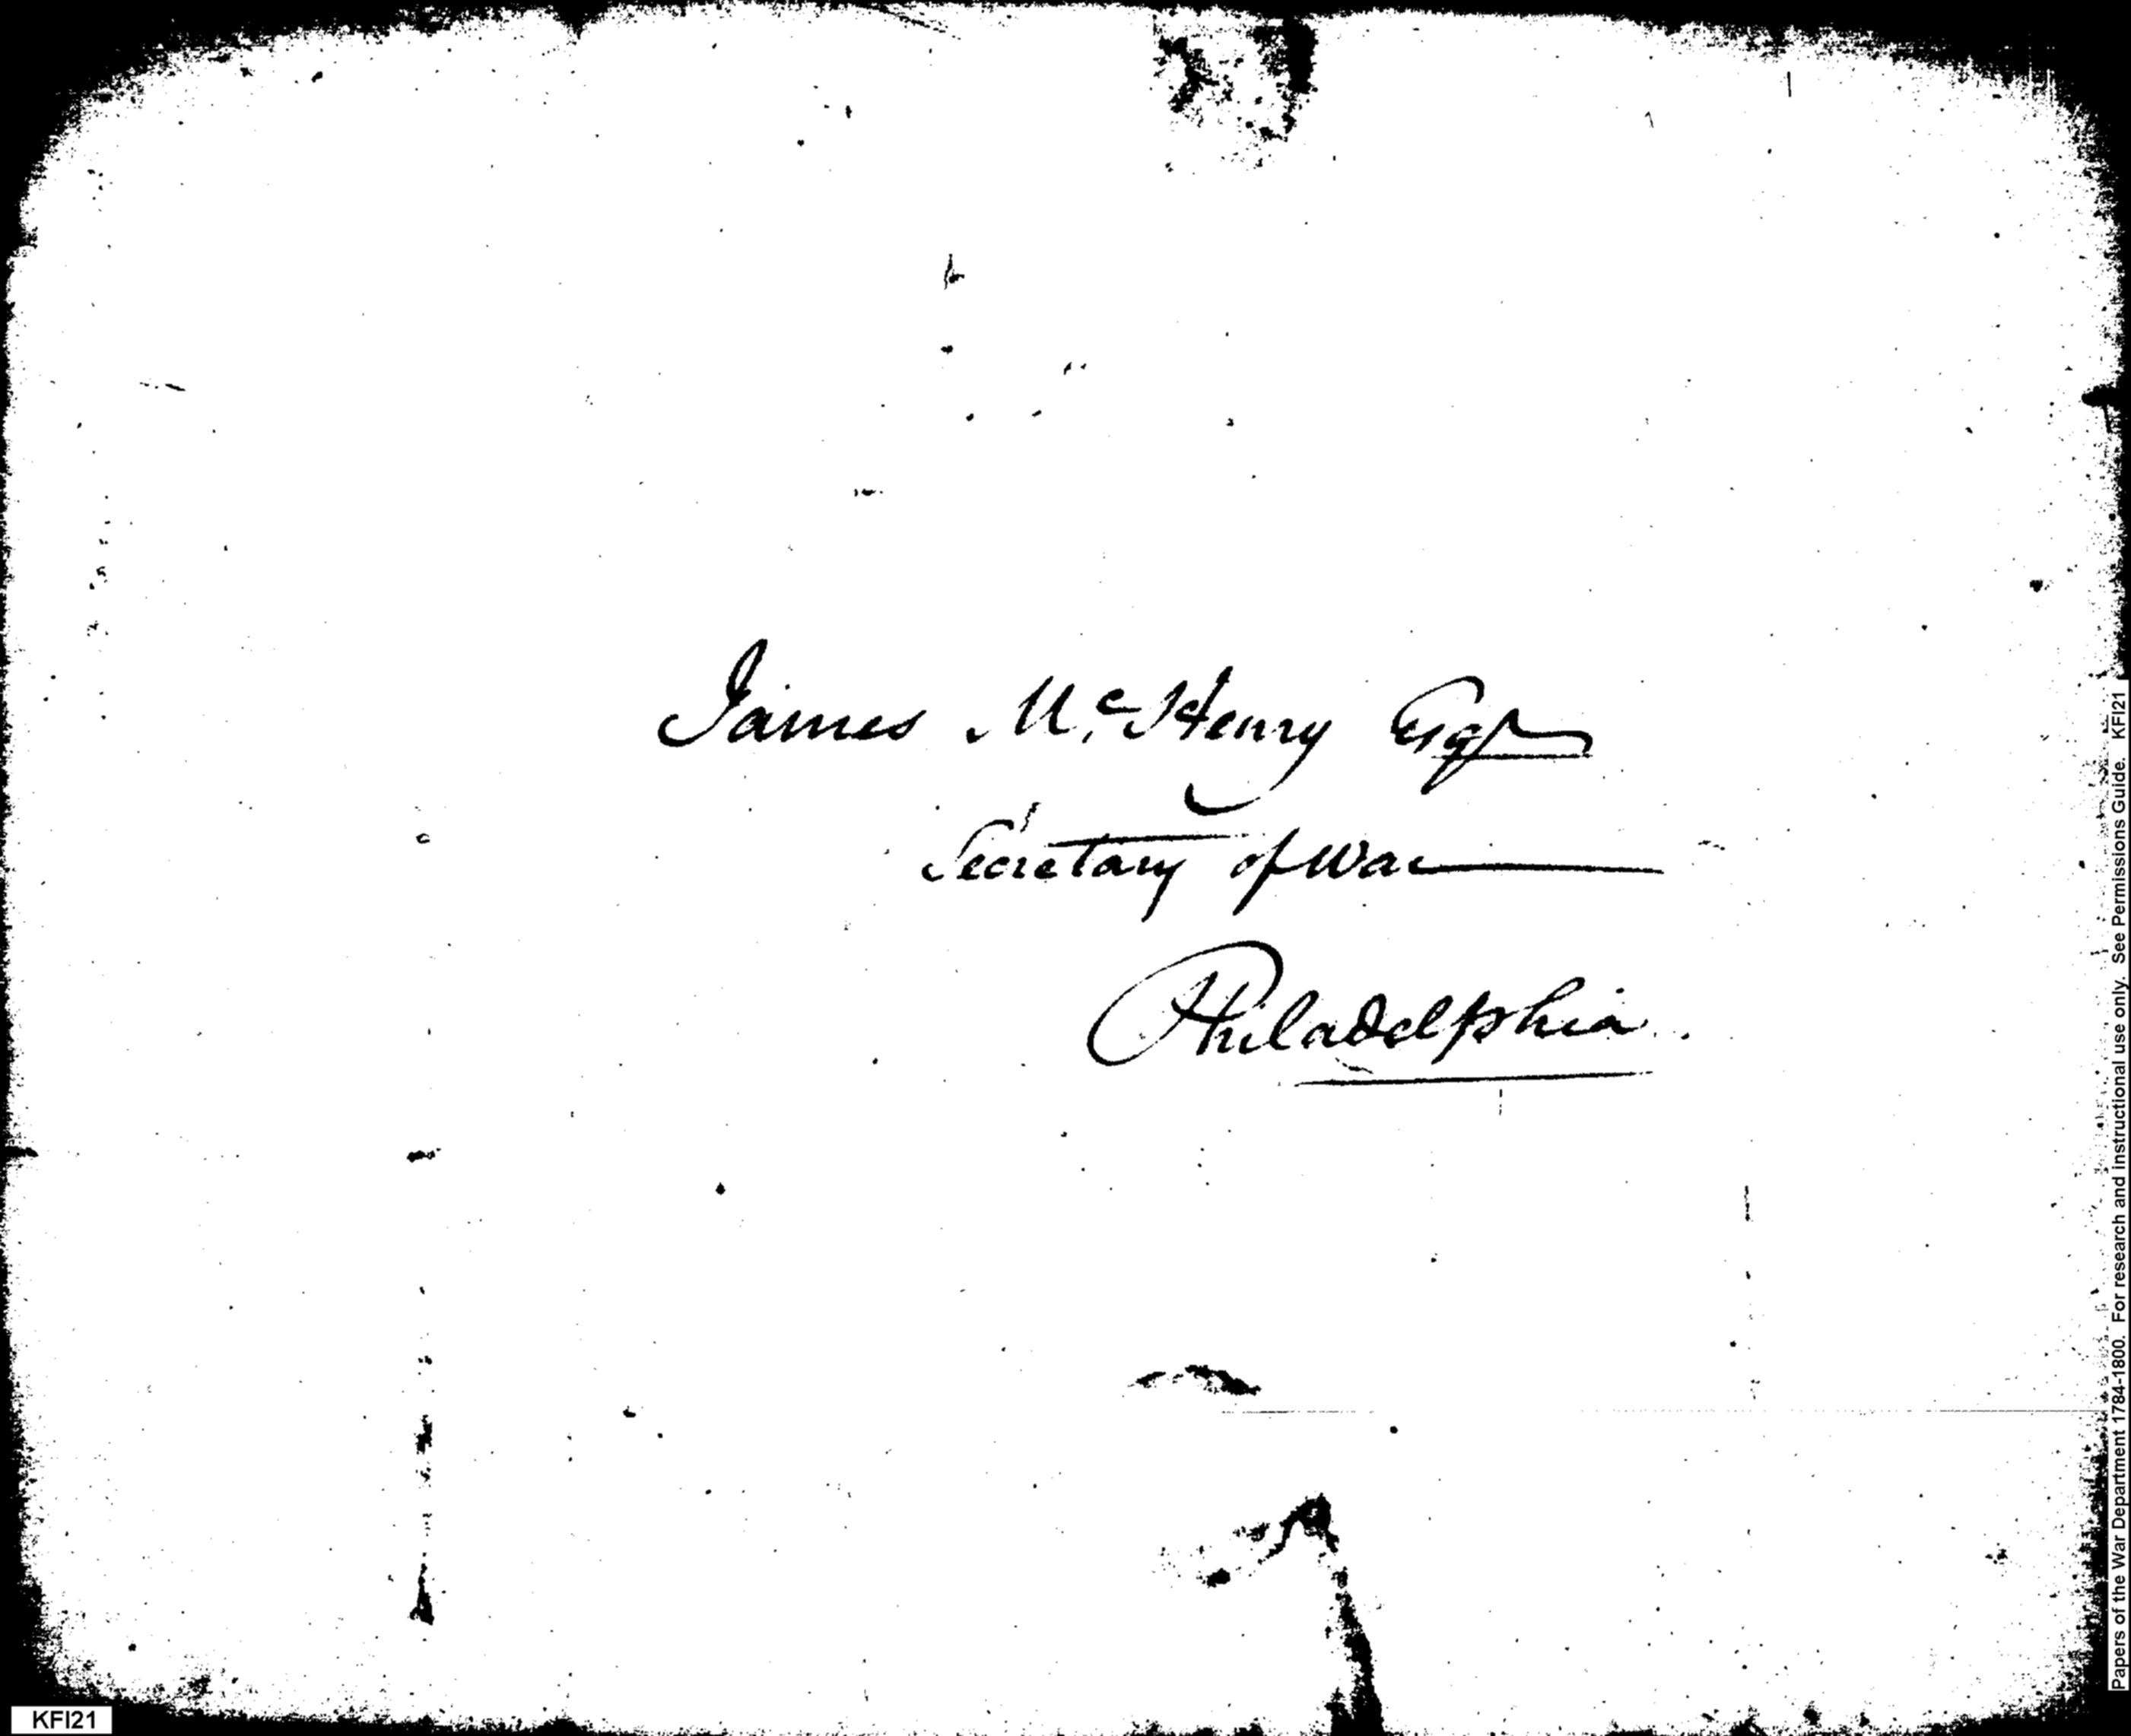 James Mc. Henry Esqr
Secretary of War
Philadelphia.
Papers of the War Department 1784-1800. For research and instructional use only. See Permissions Guide. KFI21
KFI21